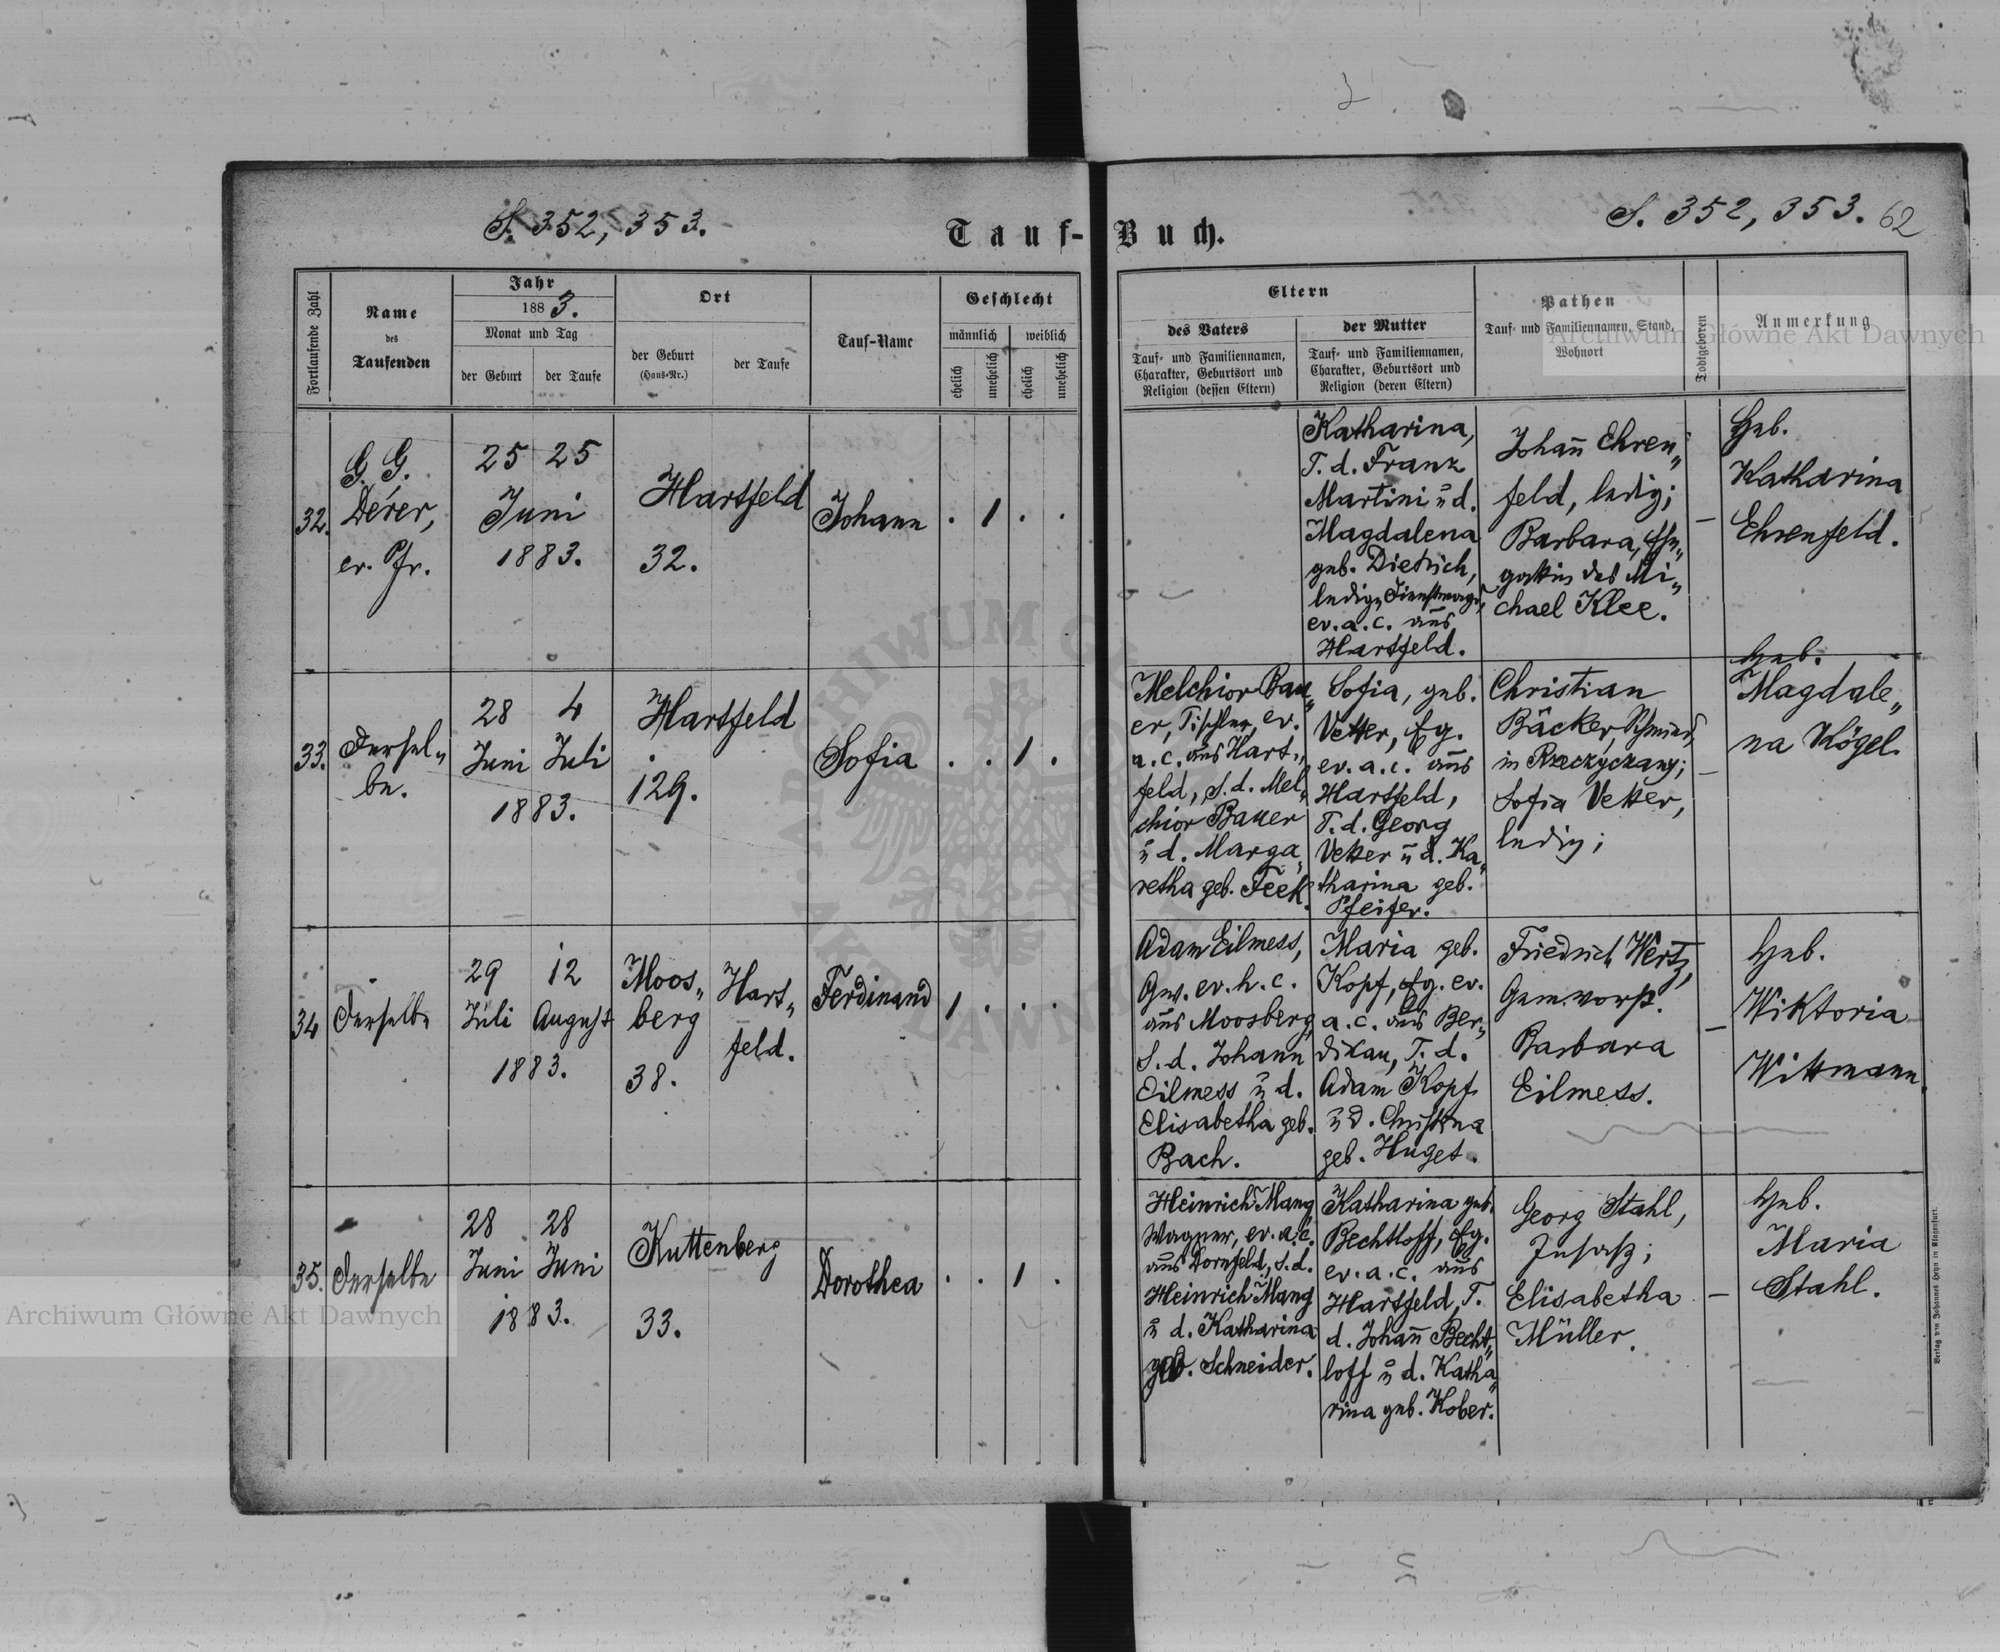 S. 352, 353.
Tauf-Buch.
S. 352, 353. 62
Fortlaufende Zahl
Name
des
Taufenden
Jahr
1883.
Monat und Tag
der Geburt
der Taufe
Ort
der Geburt
(Haus-Nr.)
der Taufe
Tauf-Name
Geschlecht
männlich
weiblich
ehelich
unehelich
ehelich
unehelich
Eltern
des Vaters
Tauf- und Familiennamen,
Charakter, Geburtsort und
Religion (dessen Eltern)
der Mutter
Tauf- und Familiennamen,
Charakter, Geburtsort und
Religion (deren Eltern)
Pathen
Tauf- und Familiennamen, Stand,
Wohnort
Todtgeboren
Anmerkung
Archiwum Główne Akt Dawnych
32.
G. G.
Dérer,
ev. Pfr.
25 25
Juni
1883.
Hartfeld
32.
Johann
. 1 . .
Katharina,
T. d. Franz
Martini u d.
Magdalena
geb. Dietrich,
ledige Dienstmagd,
ev. a. c. aus
Hartfeld.
Johan̄ Ehren„
feld, ledig;
Barbara, Ehe„
gattin des Mi„
chael Klee.
–
Heb.
Katharina
Ehrenfeld.
33.
Dersel„
be.
28 4
Juni Juli
1883.
Hartfeld
129.
Sofia
. . 1 .
Melchior Bau„
er, Tischler, ev.
a. c. aus Hart„
feld, S. d. Mel„
chior Bauer
u d. Marga„
retha geb. Feek.
Sofia, geb.
Vetter, Eg.
ev. a. c. aus
Hartfeld,
T. d. Georg
Vetter u d. Ka„
tharina geb.
Pfeifer.
Christian
Bäcker, Schmied,
in Rzeczyczany;
Sofia Vetter,
ledig;
–
Heb.
Magdale„
na Kögel.
34
Derselbe
29 12
Juli August
1883.
Moos„
berg
38.
Hart„
feld.
Ferdinand
1 . . .
Adam Eilmess,
Gw. ev. h. c.
aus Moosberg,
S. d. Johann
Eilmess u d.
Elisabetha geb.
Bach.
Maria geb.
Kopf, Eg. ev.
a. c. aus Ber„
dikau, T. d.
Adam Kopf
u d. Christina
geb. Huget.
Friedrich Wertz,
Gem.vorst.
Barbara
Eilmess.
–
Heb.
Wiktoria
Wittmann.
35.
Derselbe
28 28
Juni Juni
1883.
Kuttenberg
33.
Dorothea
. . 1 .
Heinrich Mang
Wagner, ev. a. c.
aus Dornfeld, S. d.
Heinrich Mang
u d. Katharina
geb. Schneider.
Katharina geb.
Bechtloff, Eg.
ev. a. c. aus
Hartfeld, T.
d. Johan̄ Becht„
loff u d. Katha„
rina geb. Kober.
Georg Stahl,
Insaß;
Elisabetha
Müller.
–
Heb.
Maria
Stahl.
Archiwum Główne Akt Dawnych
Verlag von Johannes Heyn in Klagenfurt.